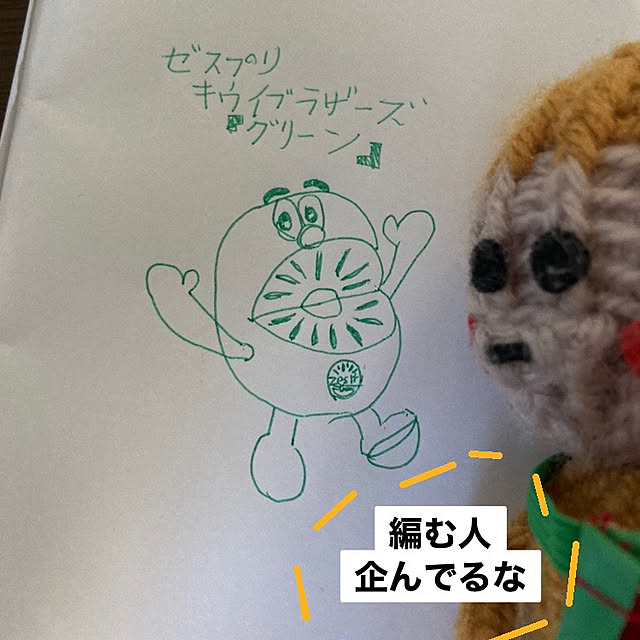 ゼスプリ
キウイブラザーズ
『グリーン』
Zespri
編む人
企んでるな